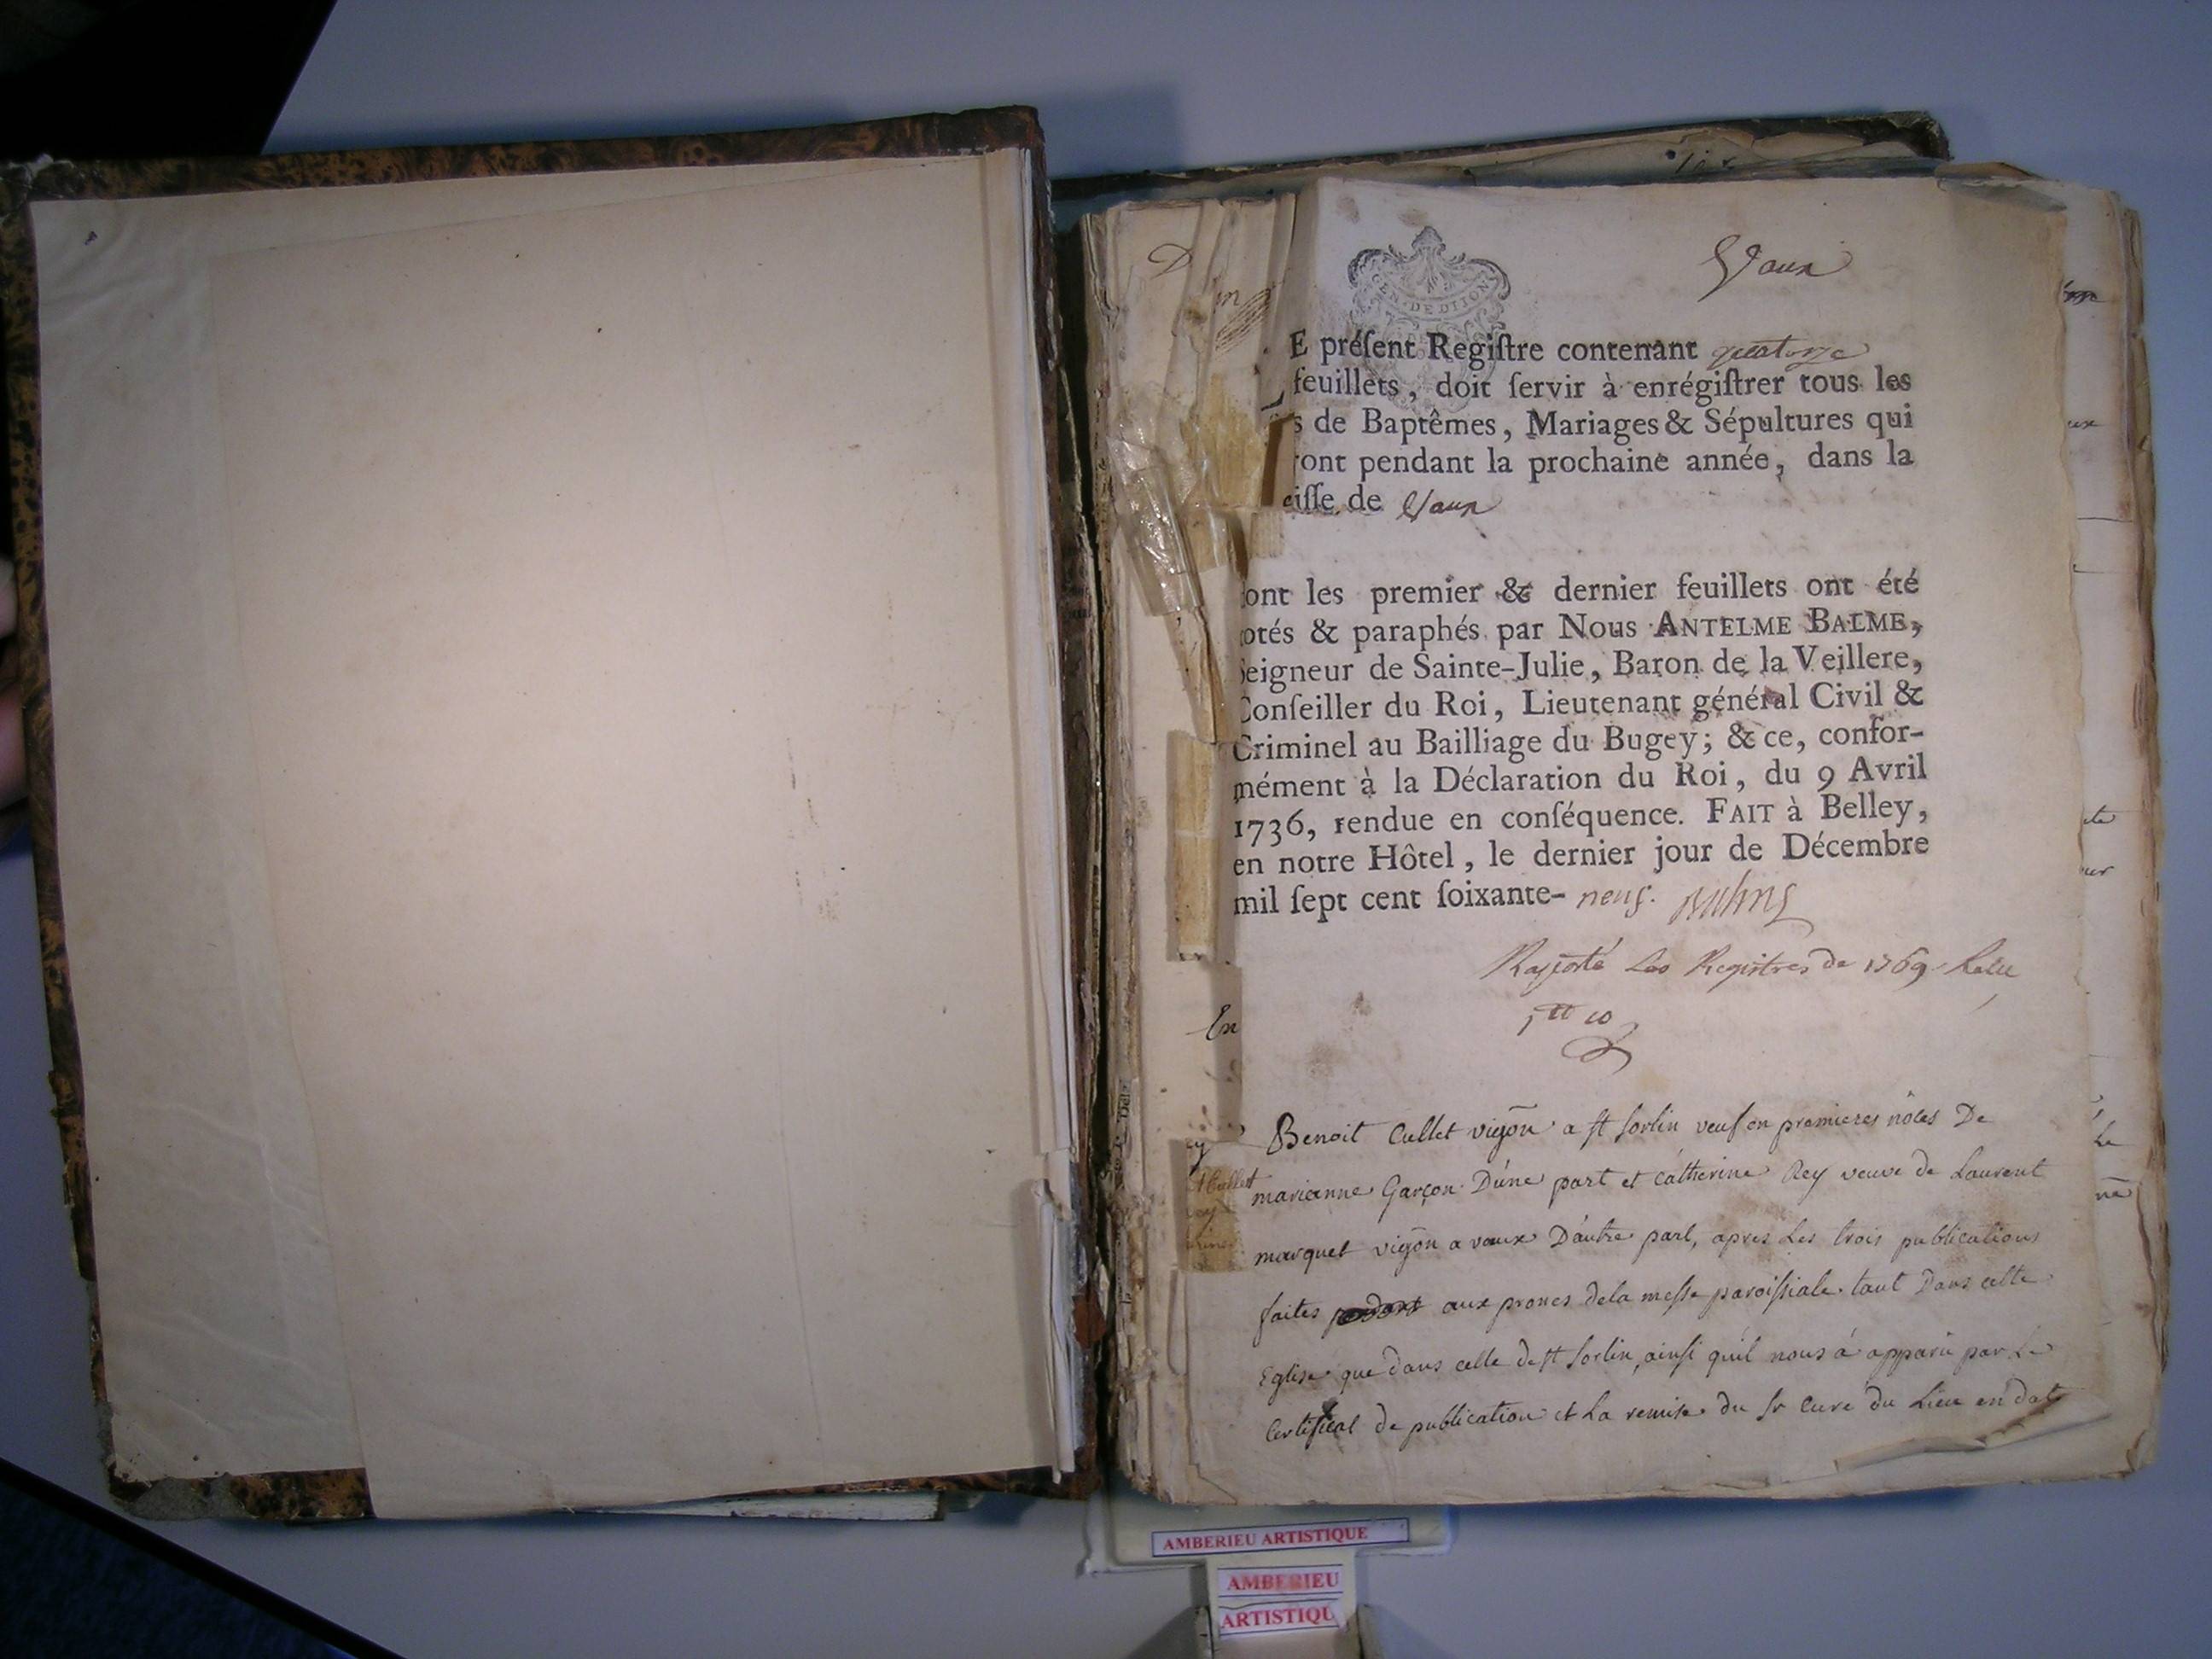 Vaux
GEN. DE DIJON
E préſent Regiſtre contenant quatorze
feuillets, doit ſervir à enrégiſtrer tous les
s de Baptêmes, Mariages & Sépultures qui
ront pendant la prochaine année, dans la
oiſſe de Vaux
dont les premier & dernier feuillets ont été
cotés & paraphés par Nous ANTELME BALME,
Seigneur de Sainte-Julie, Baron de la Veillere,
Conſeiller du Roi, Lieutenant général Civil &
Criminel au Bailliage du Bugey; & ce, confor-
mément à la Déclaration du Roi, du 9 Avril
1736, rendue en conſéquence. FAIT à Belley,
en notre Hôtel, le dernier jour de Décembre
mil ſept cent ſoixante- neuf. Balme
Raporté Les Registres de 1769
En
Benoit Cullet vigōn a st sorlin veuf en premieres nôces De
marianne Garçon D'une part et catherine Rey veuve de Laurent
marquet vigōn a vaux D'autre part, apres Les trois publications
faites aux prones dela messe paroissiale tant Dans cette
Eglise que dans celle de st sorlin, ainsi quil nous à apparû par Le
Certificat de publication et La remise du sr Curé du Lieu en dat
AMBERIEU ARTISTIQUE
AMBERIEU
ARTISTIQU